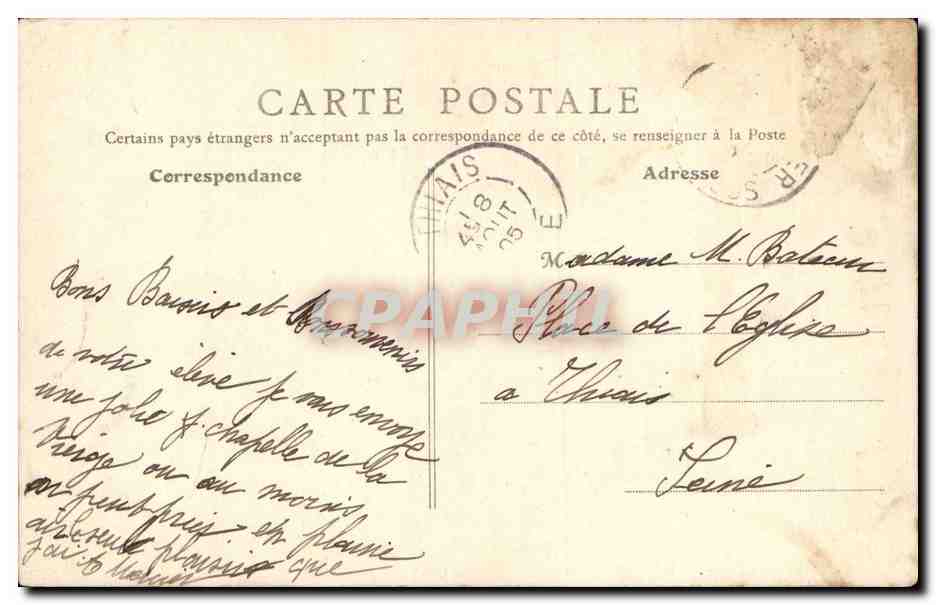 CARTE POSTALE
Certains pays étrangers n'acceptant pas la correspondance de ce côté, se renseigner à la Poste
Correspondance
Adresse
THIAIS
8
AOUT
05
E
Madame M.
Place de l'Eglise
a Thiais
Seine
Bons Baisers et Bons souvenirs
de votre élève je vous envoye
une jolie chapelle de la
Vierge ou au moins
on peut prier en plaine
air seul plaisir que
j'ai
CPARAMA